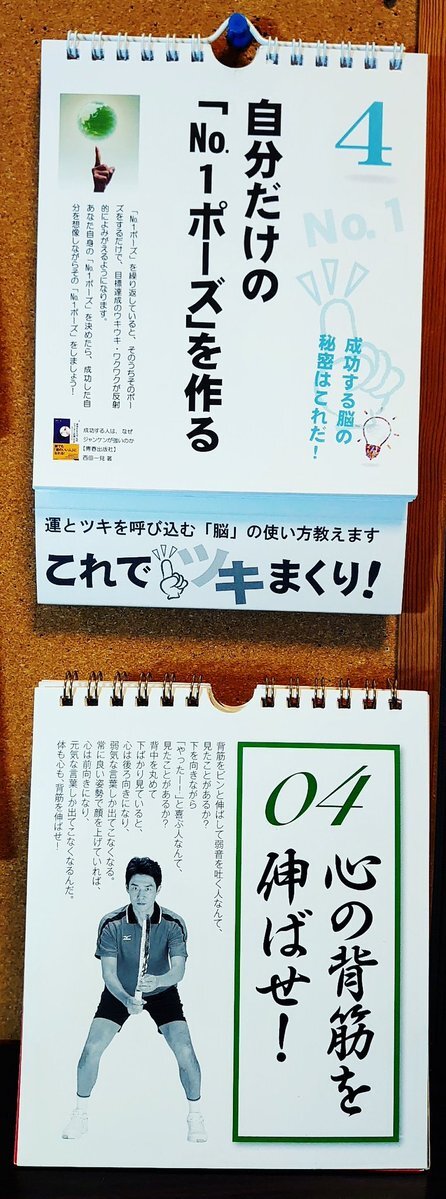 4
自分だけの
「No.1ポーズ」を作る
No.1
成功する脳の
秘密はこれだ！
「No.1ポーズ」を繰り返していると、そのうちそのポー
ズをするだけで、目標達成のウキウキ・ワクワクが反射
的によみがえるようになります。
あなた自身の「No.1ポーズ」を決めたら、成功した自
分を想像しながらその「No.1ポーズ」をしましょう！
成功する人は、なぜ
ジャンケンが強いのか
【青春出版社】
西田一見 著
運とツキを呼び込む「脳」の使い方教えます
これでツキまくり！
04
心の背筋を
伸ばせ！
背筋をピンと伸ばして弱音を吐く人なんて、
見たことがあるか？
下を向きながら
「やったー！」と喜ぶ人なんて、
見たことがあるか？
背中を丸めて
下ばかり見ていると、
心は後ろ向きになり、
弱気な言葉しか出てこなくなる。
常に良い姿勢で顔を上げていれば、
心は前向きになり、
元気な言葉しか出てこなくなるんだ。
体も心も、背筋を伸ばせ！